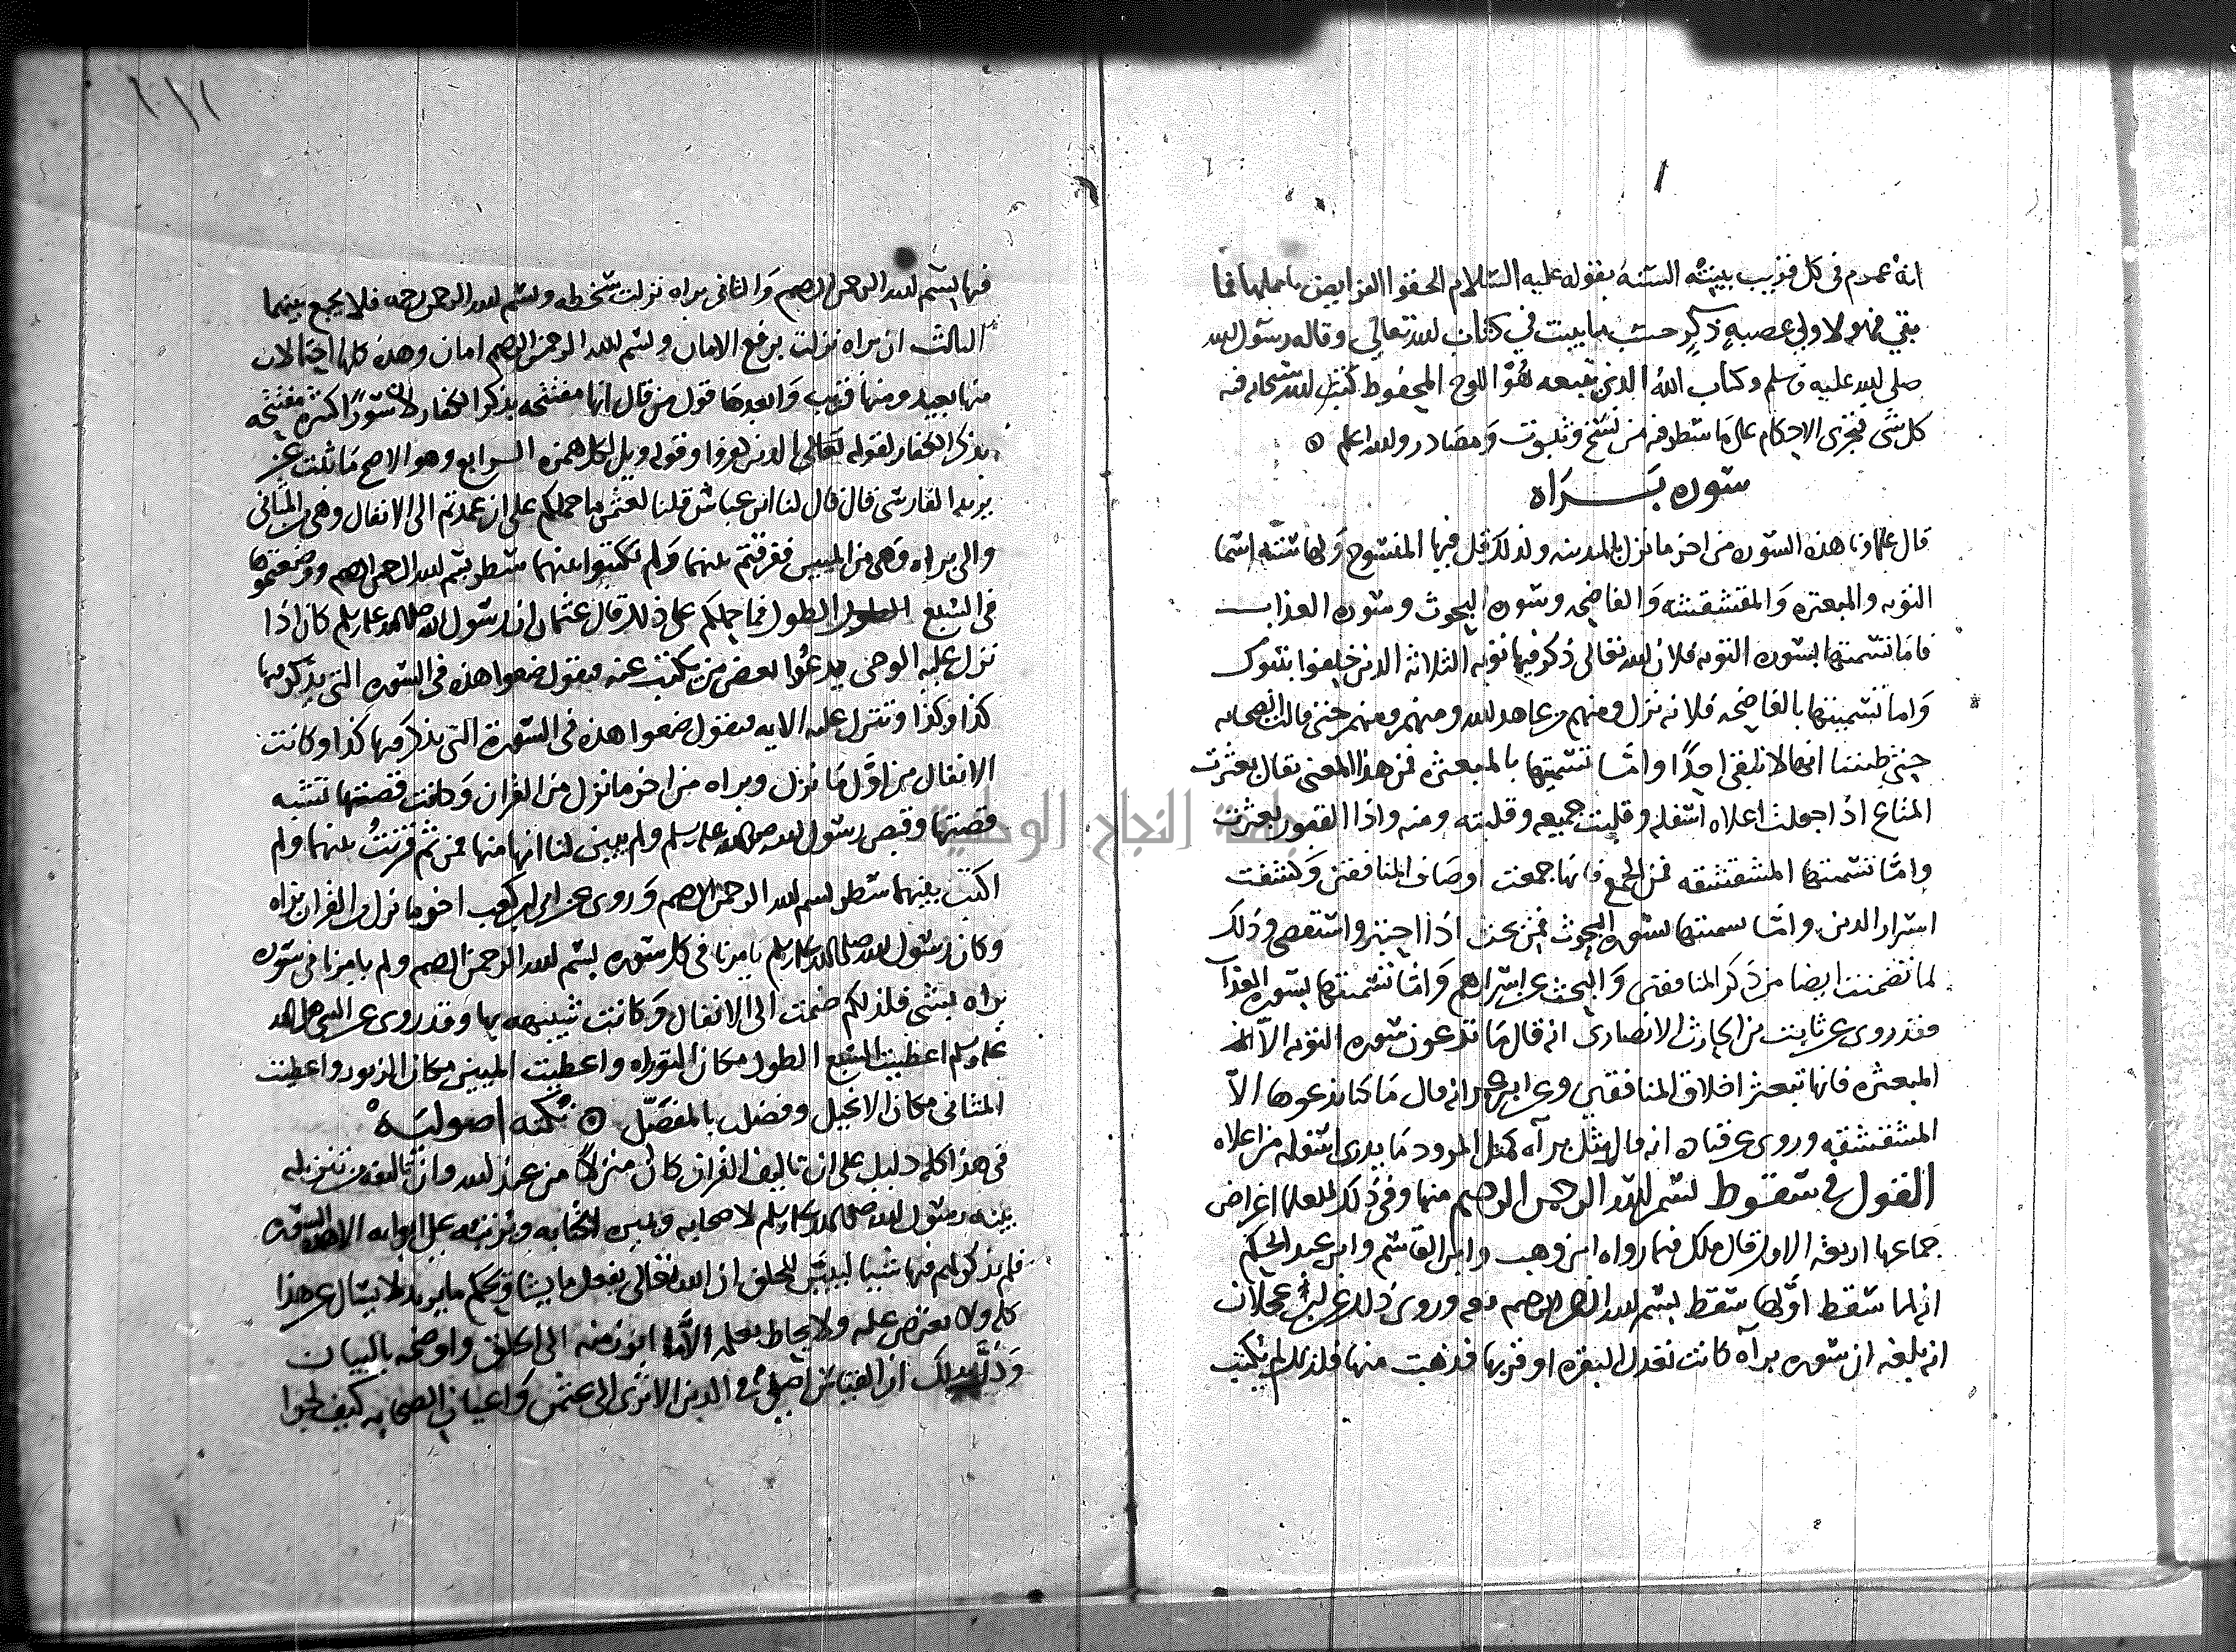 انه عموم في كل قريب بينته السنة بقوله عليه السلام الحقوا الفرايض باهلها فما
بقي فهو لاولي عصبة ذكر حسب ما بيت في كتاب الله تعالى وقاله رسول الله
صلى الله عليه وسلم وكتاب الله الذي هو اللوح المحفوظ كتب الله سبحانه فيه
كل شي فتجري الاحكام على ما سطر فيه من نسخ وثبوت ومصادر والله اعلم
سورة براة
قال علماونا هذه السورة من اخر ما نزل بالمدينة ولذلك قل فيها المنسوخ ولها ستة اسما
التوبة والمبعثرة والمقشقشة والفاضحة وسورة البحوث وسورة العذاب
فاما تسميتها بسورة التوبة فلان الله تعالى ذكر فيها توبة الثلاثة الذين خلفوا بتبوك
واما تسميتها بالفاضحة فلانه نزل ومنهم من عاهد الله ومنهم ومنهم حتى قالت الصحابة
حتى ظننا انها لا تبقي احدا واما تسميتها بالمبعثرة فمن هذا المعنى يقال بعثرت
المتاع اذا جعلت اعلاه اسفله وقلبت جميعه وقلبته ومنه واذا القبور بعثرت
واما تسميتها المشقشقه فمن الجمع فانها جمعت اوصاف المنافقين وكشفت
اسرار الدين واما سميتها بسورة البحوث فمن بحث اذا اختبر واستقصى وذلك
لما تضمنت ايضا من ذكر المنافقين والبحث عن اسرارهم واما تسميتها بسورة العذاب
فقد روى عن ثابت بن الحارث الانصاري انه قال ما تدعون سورة التوبة الا
المبعثرة فانها تبعثر اخلاق المنافقين وعن ابن عمر انه قال ما كنا ندعوها الا
المشقشقه وروى عن قتادة انه قال مثل براة كمثل المرود ما يدرى اسفله من اعلاه
القول في سقوط بسم الله الرحمن الرحيم منها وفي ذلك للعلما اغراض
جماعها اربعة الاول قال ملك فيما رواه ابن وهب وابن القاسم وابن عبد الحكم
انه لما سقط اولها سقط بسم الله الرحمن الرحيم معه وروى ذلك عن ابن عجلان
انه بلغه ان سورة براة كانت تعدل البقرة او قربها فذهب منها فلذلك لم يكتب
١١١
فيها بسم الله الرحمن الرحيم والثاني براة نزلت بسخطه وبسم الله الرحمن رحمة فلا يجمع بينهما
الثالث ان براة نزلت برفع الامان وبسم الله الرحمن الرحيم امان وهذه كلها احتمالات
منها بعيد ومنها قريب وابعدها قول من قال انها مفتتحة بذكر الكفار لان سورا كثيرة مفتتحة
بذكر الكفار لقوله تعالى الذين كفروا وقوله ويل لكل همزة الرابع وهو الاصح ما ثبت عن
يزيد الفارسي قال قال لنا ابن عباس قلنا لعثمن ما حملكم على ان عمدتم الى الانفال وهي من المثاني
والى براة وهي من المييين فقرنتم بينهما ولم تكتبوا بينهما سطر بسم الله الرحمن الرحيم ووضعتموها
في السبع الطول فما حملكم على ذلك قال عثمان ان رسول الله صلى الله عليه وسلم كان اذا
نزل عليه الوحي يدعوا بعض من يكتب عنه فيقول ضعوا هذه في السورة التي يذكر فيها
كذا وكذا وتنزل عليه الاية فيقول ضعوا هذه في السورة التي يذكر فيها كذا وكانت
الانفال من اول ما نزل وبراة من اخر ما نزل من القران وكانت قصتها تشبه
قصتها وقبض رسول الله صلى الله عليه وسلم ولم يبين لنا انها منها فمن ثم قرنت بينهما ولم
اكتب بينهما سطر بسم الله الرحمن الرحيم وروى عن ابي بن كعب اخر ما نزل من القران براة
وكان رسول الله صلى الله عليه وسلم يامرنا في كل سورة بسم الله الرحمن الرحيم ولم يامرنا في سورة
براة بشي فلذلكم ضمت الى الانفال وكانت شبيهة بها وقد روى عن النبي صلى الله
عليه وسلم اعطيت السبع الطول مكان التوراة واعطيت المييين مكان الزبور واعطيت
المثاني مكان الانجيل وفضلت بالمفصل نكتة اصولية
في هذا كله دليل على ان تاليف القران كان منزلا من عند الله وان تاليفه من تنزيله
يبينه رسول الله صلى الله عليه وسلم لاصحابه ويميزه لكتابه ويرتبه على ابوابه الا هذه السورة
فلم يذكر لهم فيها شيئا ليبين للخلق ان الله تعالى يفعل ما يشا ويحكم ما يريد ولا يسال عن هذا
كله ولا يعترض عليه ولا يحاط بعلمه الا بما ابرز منه الى الخلق واوضحه بالبيان
ودل بذلك ان القياس اصل في الدين الا ترى الى عثمن واعيان الصحابة كيف لجوا
جامعة النجاح الوطنية